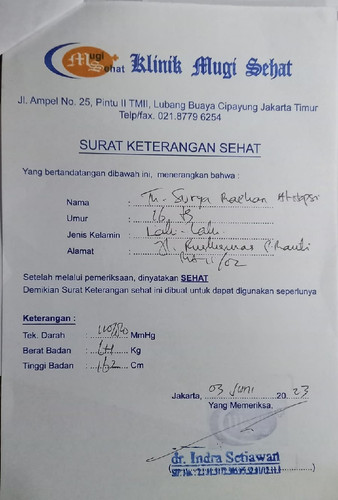 Mugi Sehat
Klinik Mugi Sehat
Jl. Ampel No. 25, Pintu II TMII, Lubang Buaya Cipayung Jakarta Timur
Telp/fax. 021.8779 6254
SURAT KETERANGAN SEHAT
Yang bertandatangan dibawah ini, menerangkan bahwa :
Nama : Tn. Surya
Umur :
Jenis Kelamin : Laki - Laki
Alamat : Jl.
11/02
Setelah melalui pemeriksaan, dinyatakan SEHAT
Demikian Surat Keterangan sehat ini dibuat untuk dapat digunakan seperlunya
Keterangan :
Tek. Darah : 110/80 MmHg
Berat Badan : Kg
Tinggi Badan : 162 Cm
Jakarta, 03 Juni 2023
Yang Memeriksa.
dr. Indra Setiawan